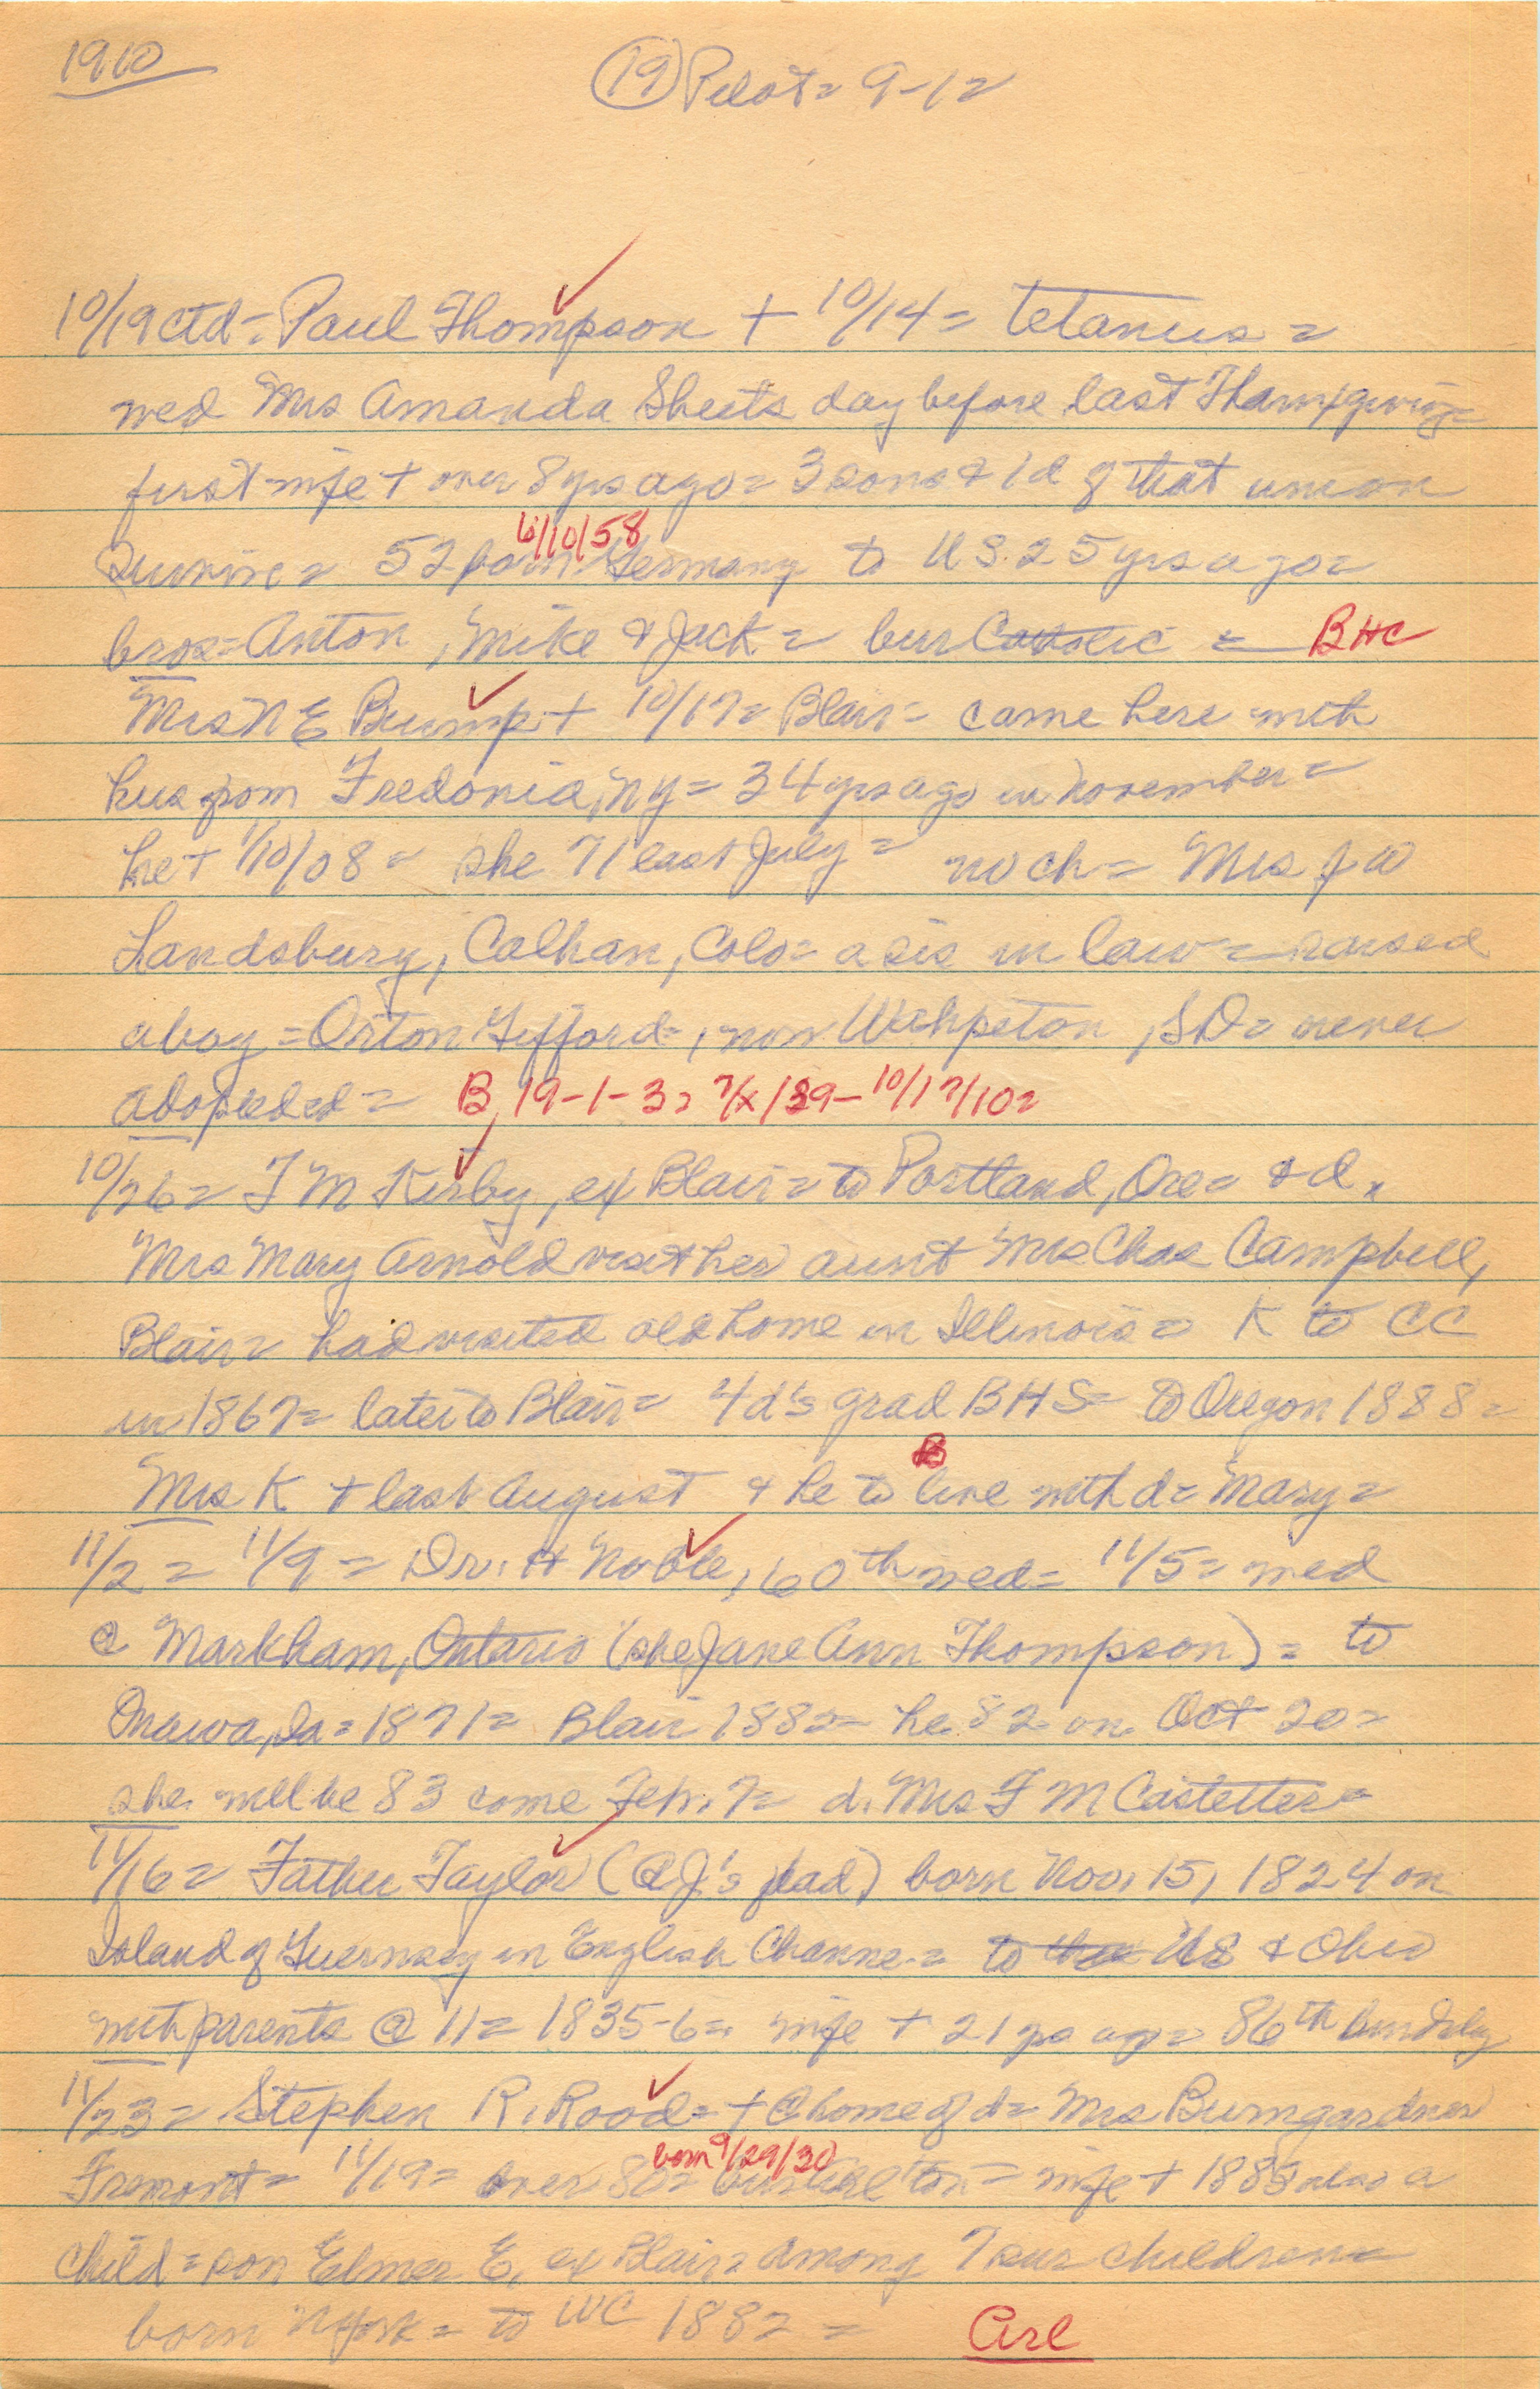 1910
(19) Pilot = 9-12
10/19 ctd = Paul Thompson + 10/14 = tetanus =
wed Mrs Amanda Sheets day before last Thanxgiving =
first wife + over 8 yrs ago = 3 sons & 1 d of that union
survive = 52 born Germany to U S. 25 yrs ago =
6/10/58
bros = Anton, Mike & Jack = bur Catholic = BHC
Mrs N E Bump + 10/17 = Blair = came here with
hus from Fredonia, NY = 34 yrs ago in November =
he + 1/10/08 = she 71 last July = no ch = Mrs J W
Landsbury, Calhan, Colo = a sis in law = raised
a boy = Orton Gifford =, now Wahpeton, SD = never
adopeded = B, 19-1-3 = 7/x/39 - 10/17/10 =
10/26 = F M Kirby, ex Blair = to Portland, Ore = & d,
Mrs Mary Arnold visit her aunt Mrs Chas Campbell,
Blair = had visited old home in Illinois = K to CC
in 1867 = later to Blair = 4 d's grad BHS = to Oregon 1888 =
B
Mrs K + last August & he to live with d = Mary =
11/2 = 11/9 = Dr. H Noble, 60th wed = 11/5 = wed
@ Markham, Ontario (she Jane Ann Thompson) = to
Onawa, Ia = 1871 = Blair 1882 = he 82 on Oct 20 =
she will be 83 come Feb. 7 = d. Mrs F M Castetter =
11/16 = Father Taylor (@ J's dad) born Nov. 15, 1824 on
Island of Guernsey in English Channe = to the US & Ohio
with parents @ 11 = 1835-6 = wife + 21 yrs ago = 86th
11/23 = Stephen R. Rood = + @ home of d = Mrs Bumgardner
Fremont = 11/19 = over 80 = = wife + 1883 also a
born 9/29/30
child = son Elmer E, ex Blair = among 7 sur children =
born N York = to WC 1882 = Arl